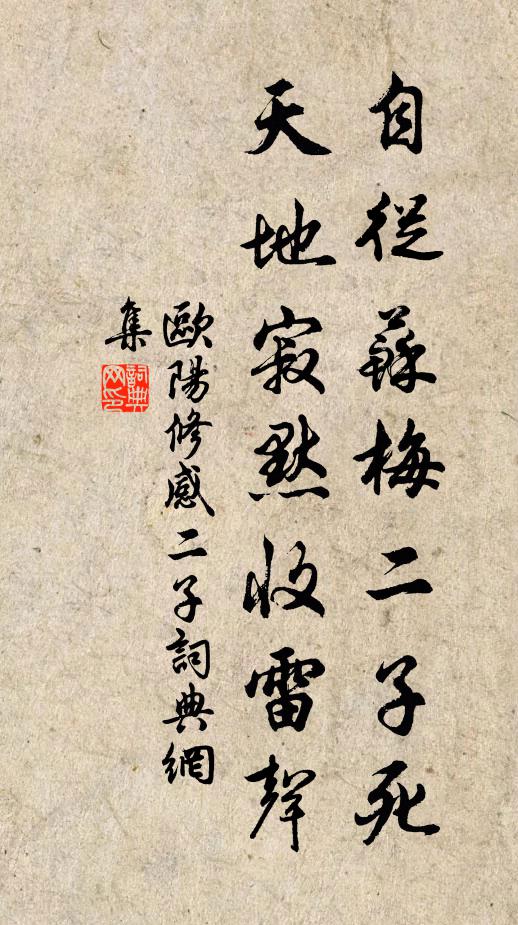 自從蘇梅二子死
天地寂默收雷聲
歐陽修感二子詞典網
集
詞典
网印